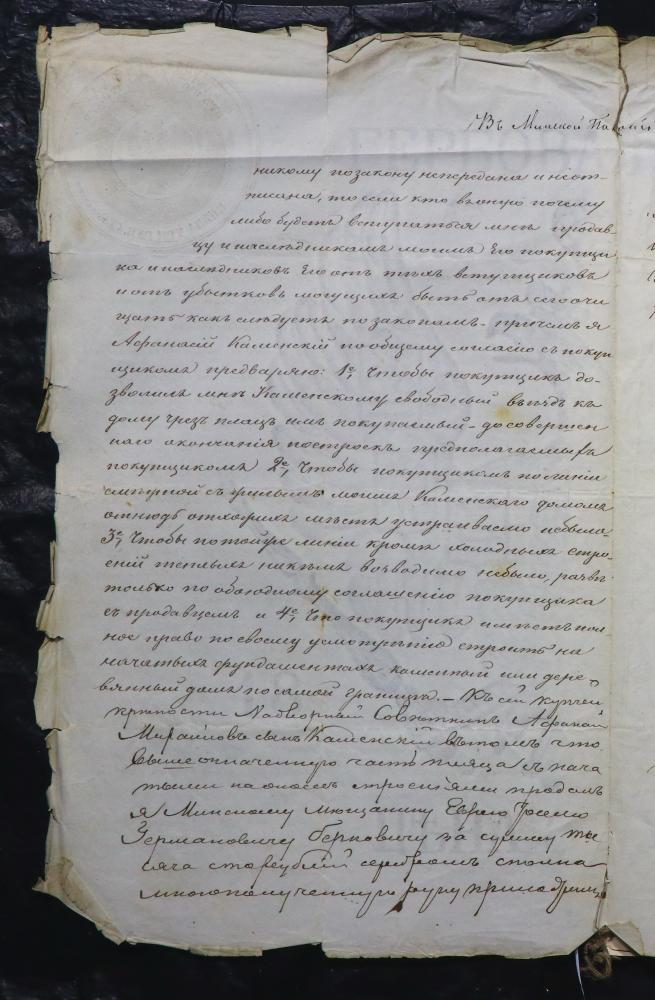 Въ Минской
никому по закону непередана и неот-
писана, то если кто въ оную почему
либо будетъ вступаться мнѣ продав-
цу и наслѣдникамъ моимъ Его покупщи
ка и наслѣдниковъ Его отъ тѣхъ вступщиковъ
и отъ убытковъ могущихъ быть отъ сего очи
щать какъ слѣдуетъ по законамъ. причемъ я
Афанасій Каменскій по общему согласію съ покуп
щикомъ предваряю: 1е, Чтобы покупщикъ до-
зволилъ мнѣ Каменскому свободный въѣздъ къ
дому чрезъ плацъ имъ покупаемый - до совершен
наго окончанія построекъ предполагаемыхъ
покупщикомъ 2е, Чтобы покупщикомъ по линіи
смѣжной съ жилымъ моимъ Каменскаго домомъ
отнюдь отхожихъ мѣстъ устраиваемо небыло.
3е, Чтобы по той же линіи кромѣ холодныхъ стро-
еній теплыхъ никѣмъ возводимо небыло, развѣ
только по обоюдному соглашенію покупщика
съ продавцемъ и 4е, Что покупщикъ имѣетъ пол
ное право по своему усмотрѣнію строить на
начатыхъ фундаментахъ каменный или дере
вянный домъ по самой границѣ. - Къ сей купчей
крѣпости Надворный Совѣтникъ Афанасій
Михайловъ сынъ Каменскій въ томъ что
выше означенную часть пляца съ нача
тымъ на ономъ строеніемъ продалъ
я Минскому мѣщанину Еврею
Германовичу Берковичу за сумму ты
сяча сто рублей серебромъ сполна
мною полученную руку приложилъ